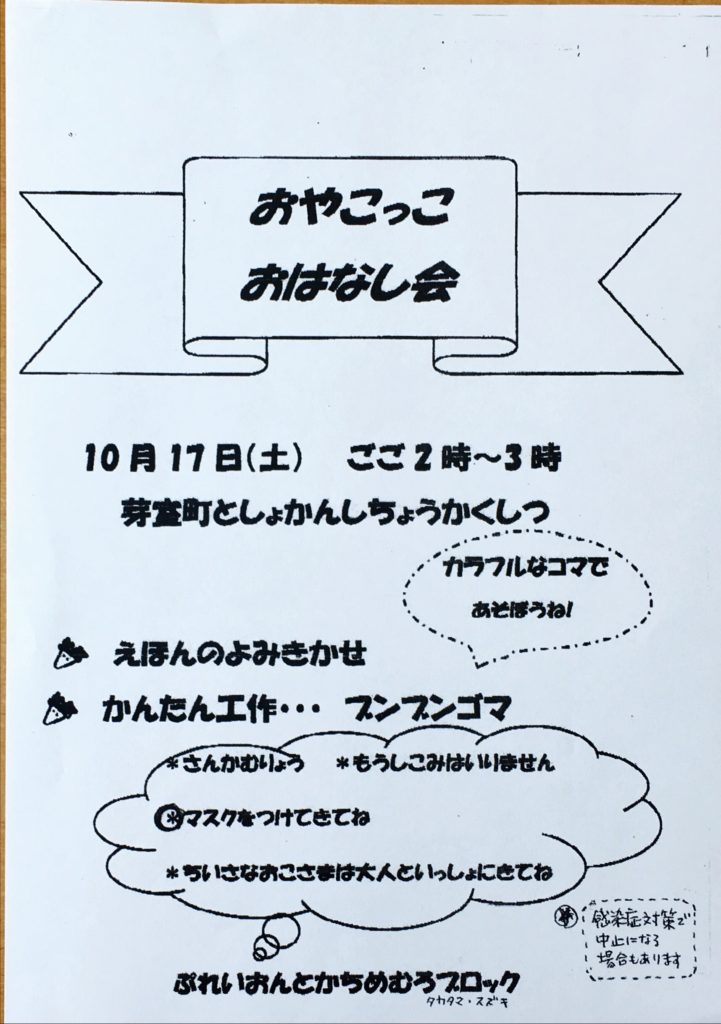 おやこっこ
おはなし会
10月17日(土) ごご2時～3時
芽室町としょかんしちょうかくしつ
カラフルなコマで
あそぼうね!
えほんのよみきかせ
かんたん工作・・・ ブンブンゴマ
*さんかむりょう *もうしこみはいりません
*マスクをつけてきてね
*ちいさなおこさまは大人といっしょにきてね
感染症対策で
中止になる
場合もあります
ぷれいおんとかちめむろブロック
タカタマ・スズキ